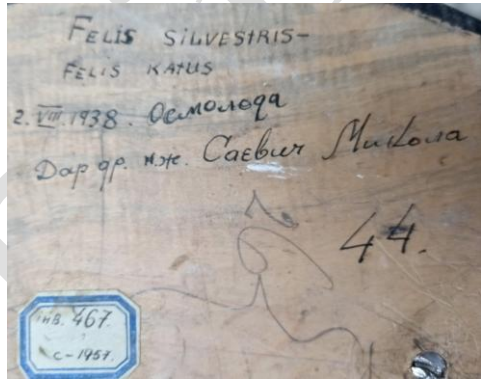 FELIS SILVESTRIS-
FELIS KATUS
2. VIII. 1938. Осмолода
Дар др. інж. Саєвич Микола
44.
ІНВ. 467.
С-1957.